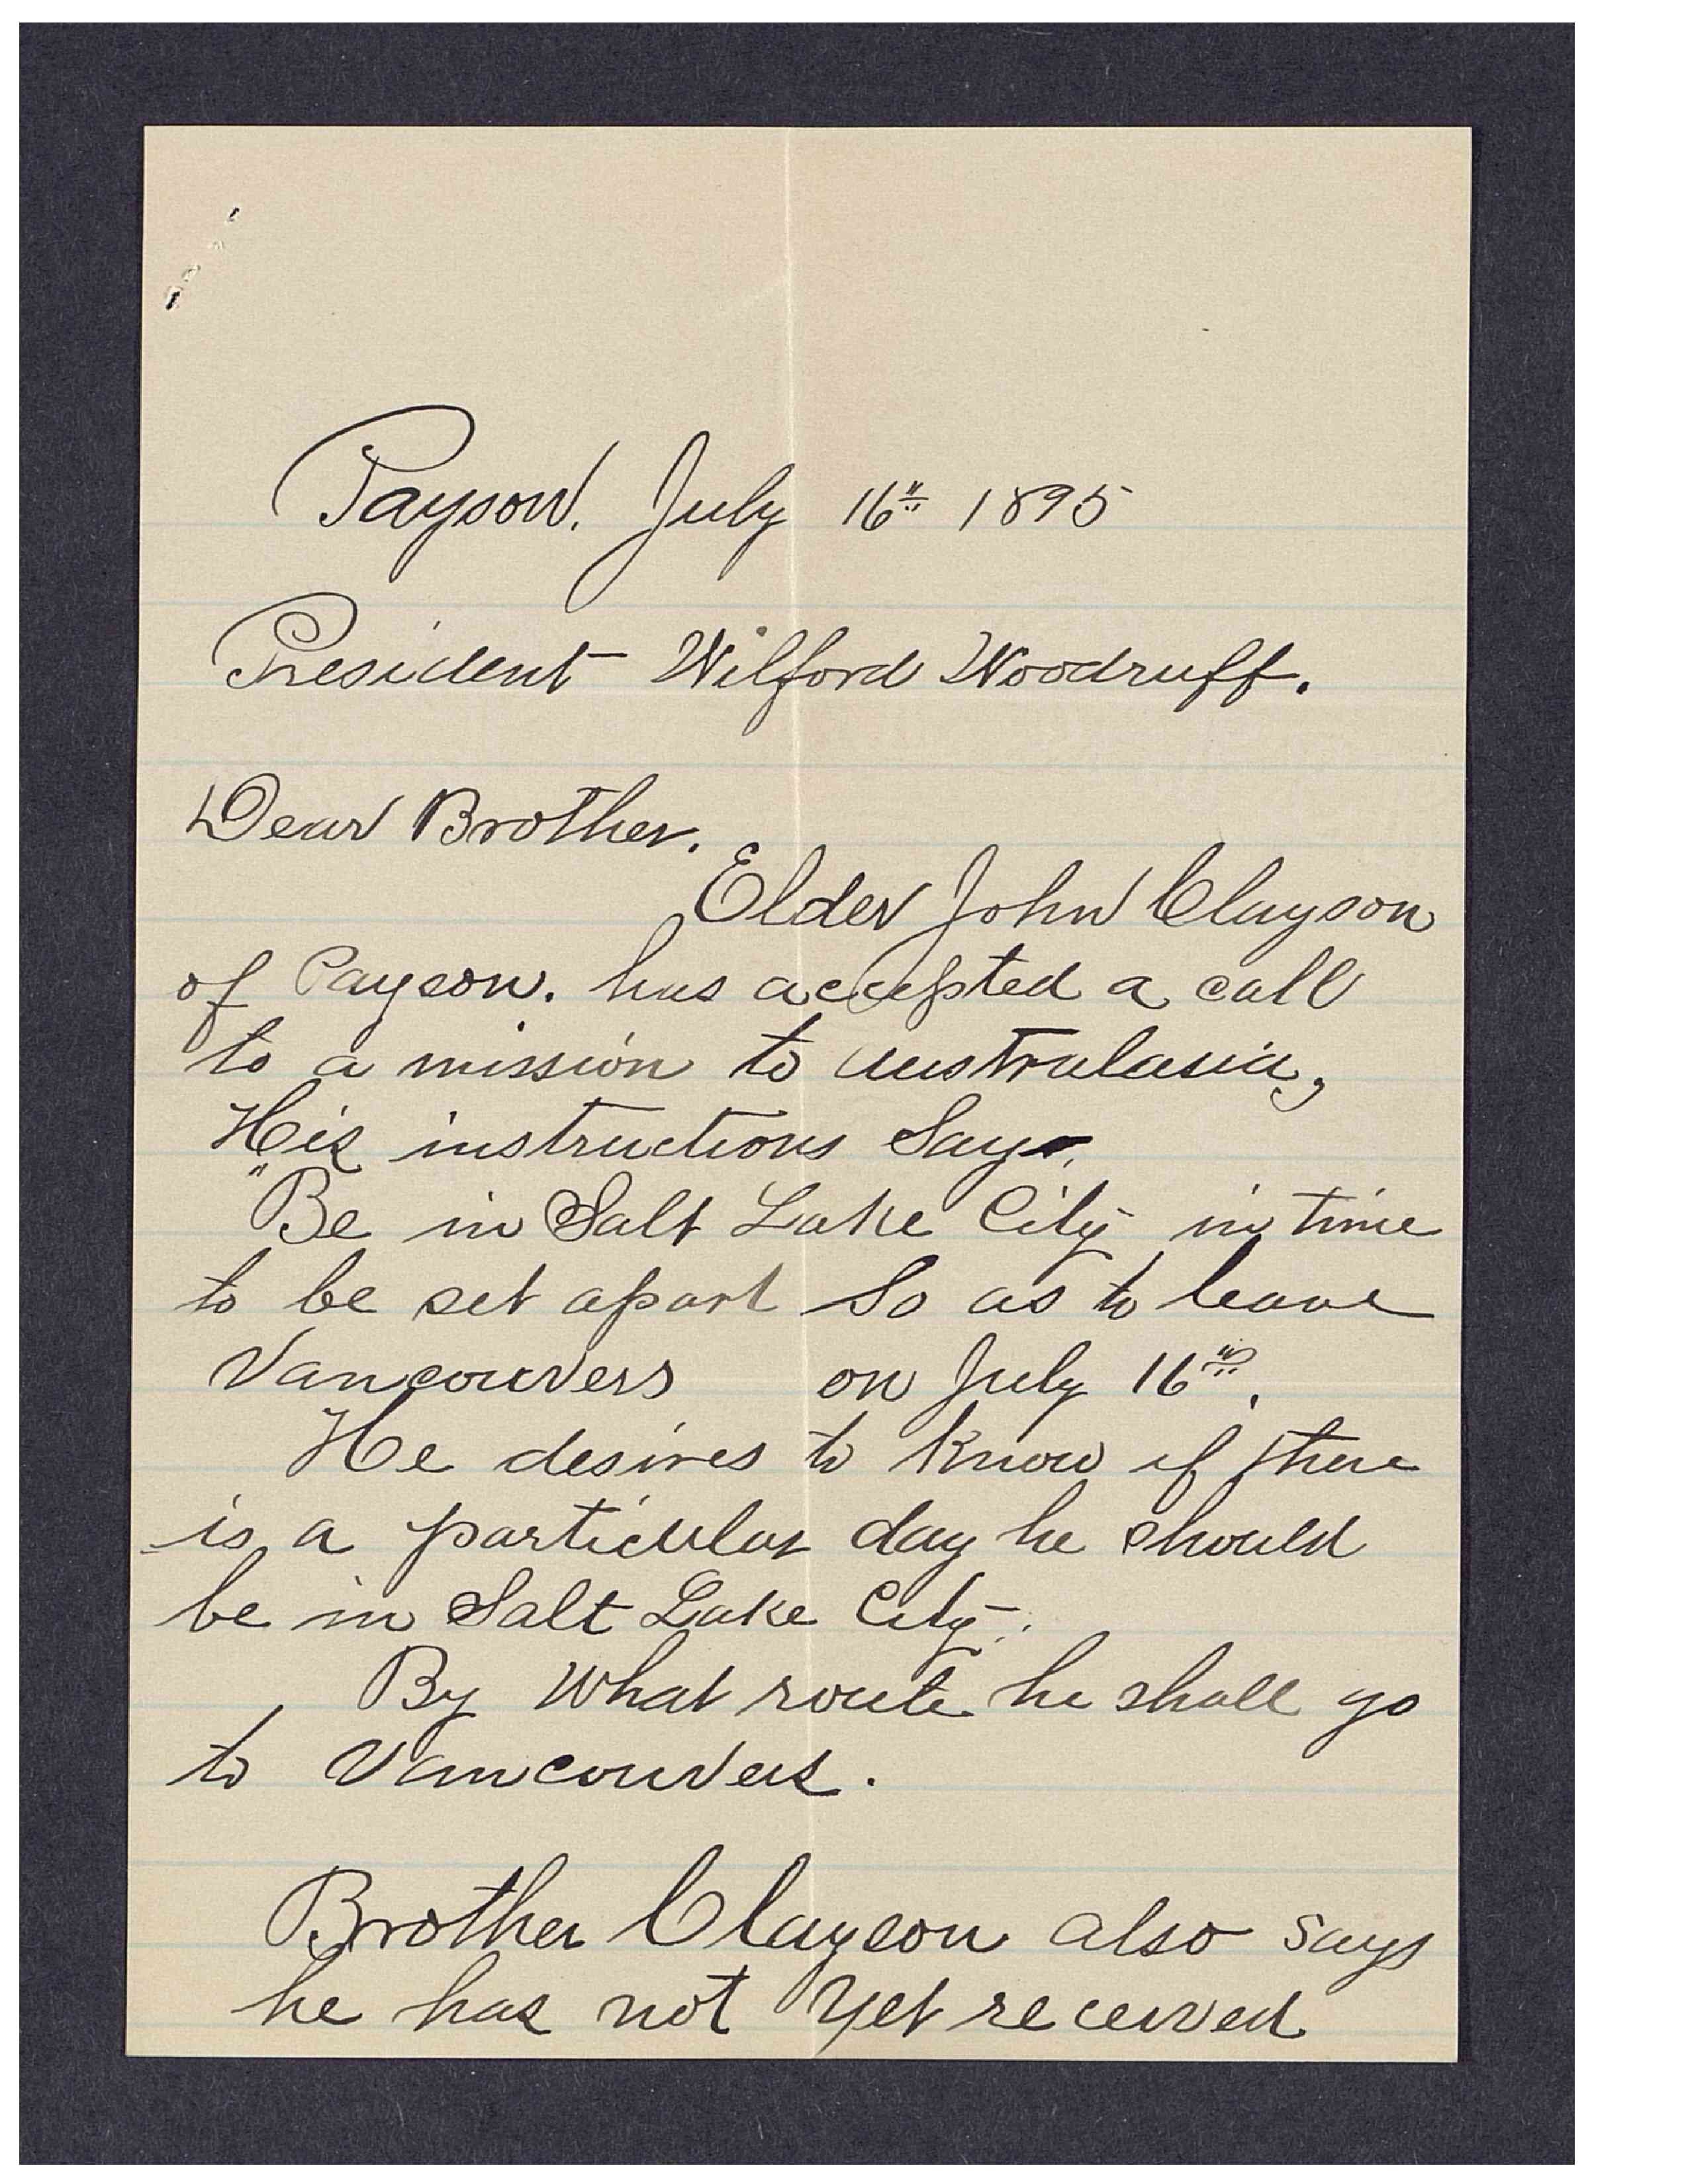 Payson. July 16th 1895
President Wilford Woodruff.
Dear Brother.
Elder John Clayson
of Payson. has accepted a call
to a mission to australasia,
His instructions Say.
"Be in Salt Lake City in time
to be set apart So as to leave
Vancouvers on July 16th.
He desires to know if there
is a particular day he should
be in Salt Lake City.
By What route he shall go
to Vancouvers.
Brother Clayson also says
he has not yet received